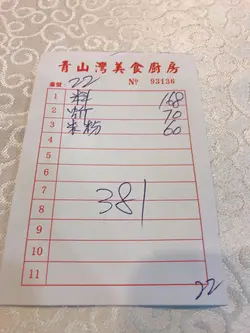 青山灣美食厨房
檯號: 22 Nº 93136
1 料 168
2 竹 70
3 米粉 60
4
5
6
7 381
8
9
10
11
22